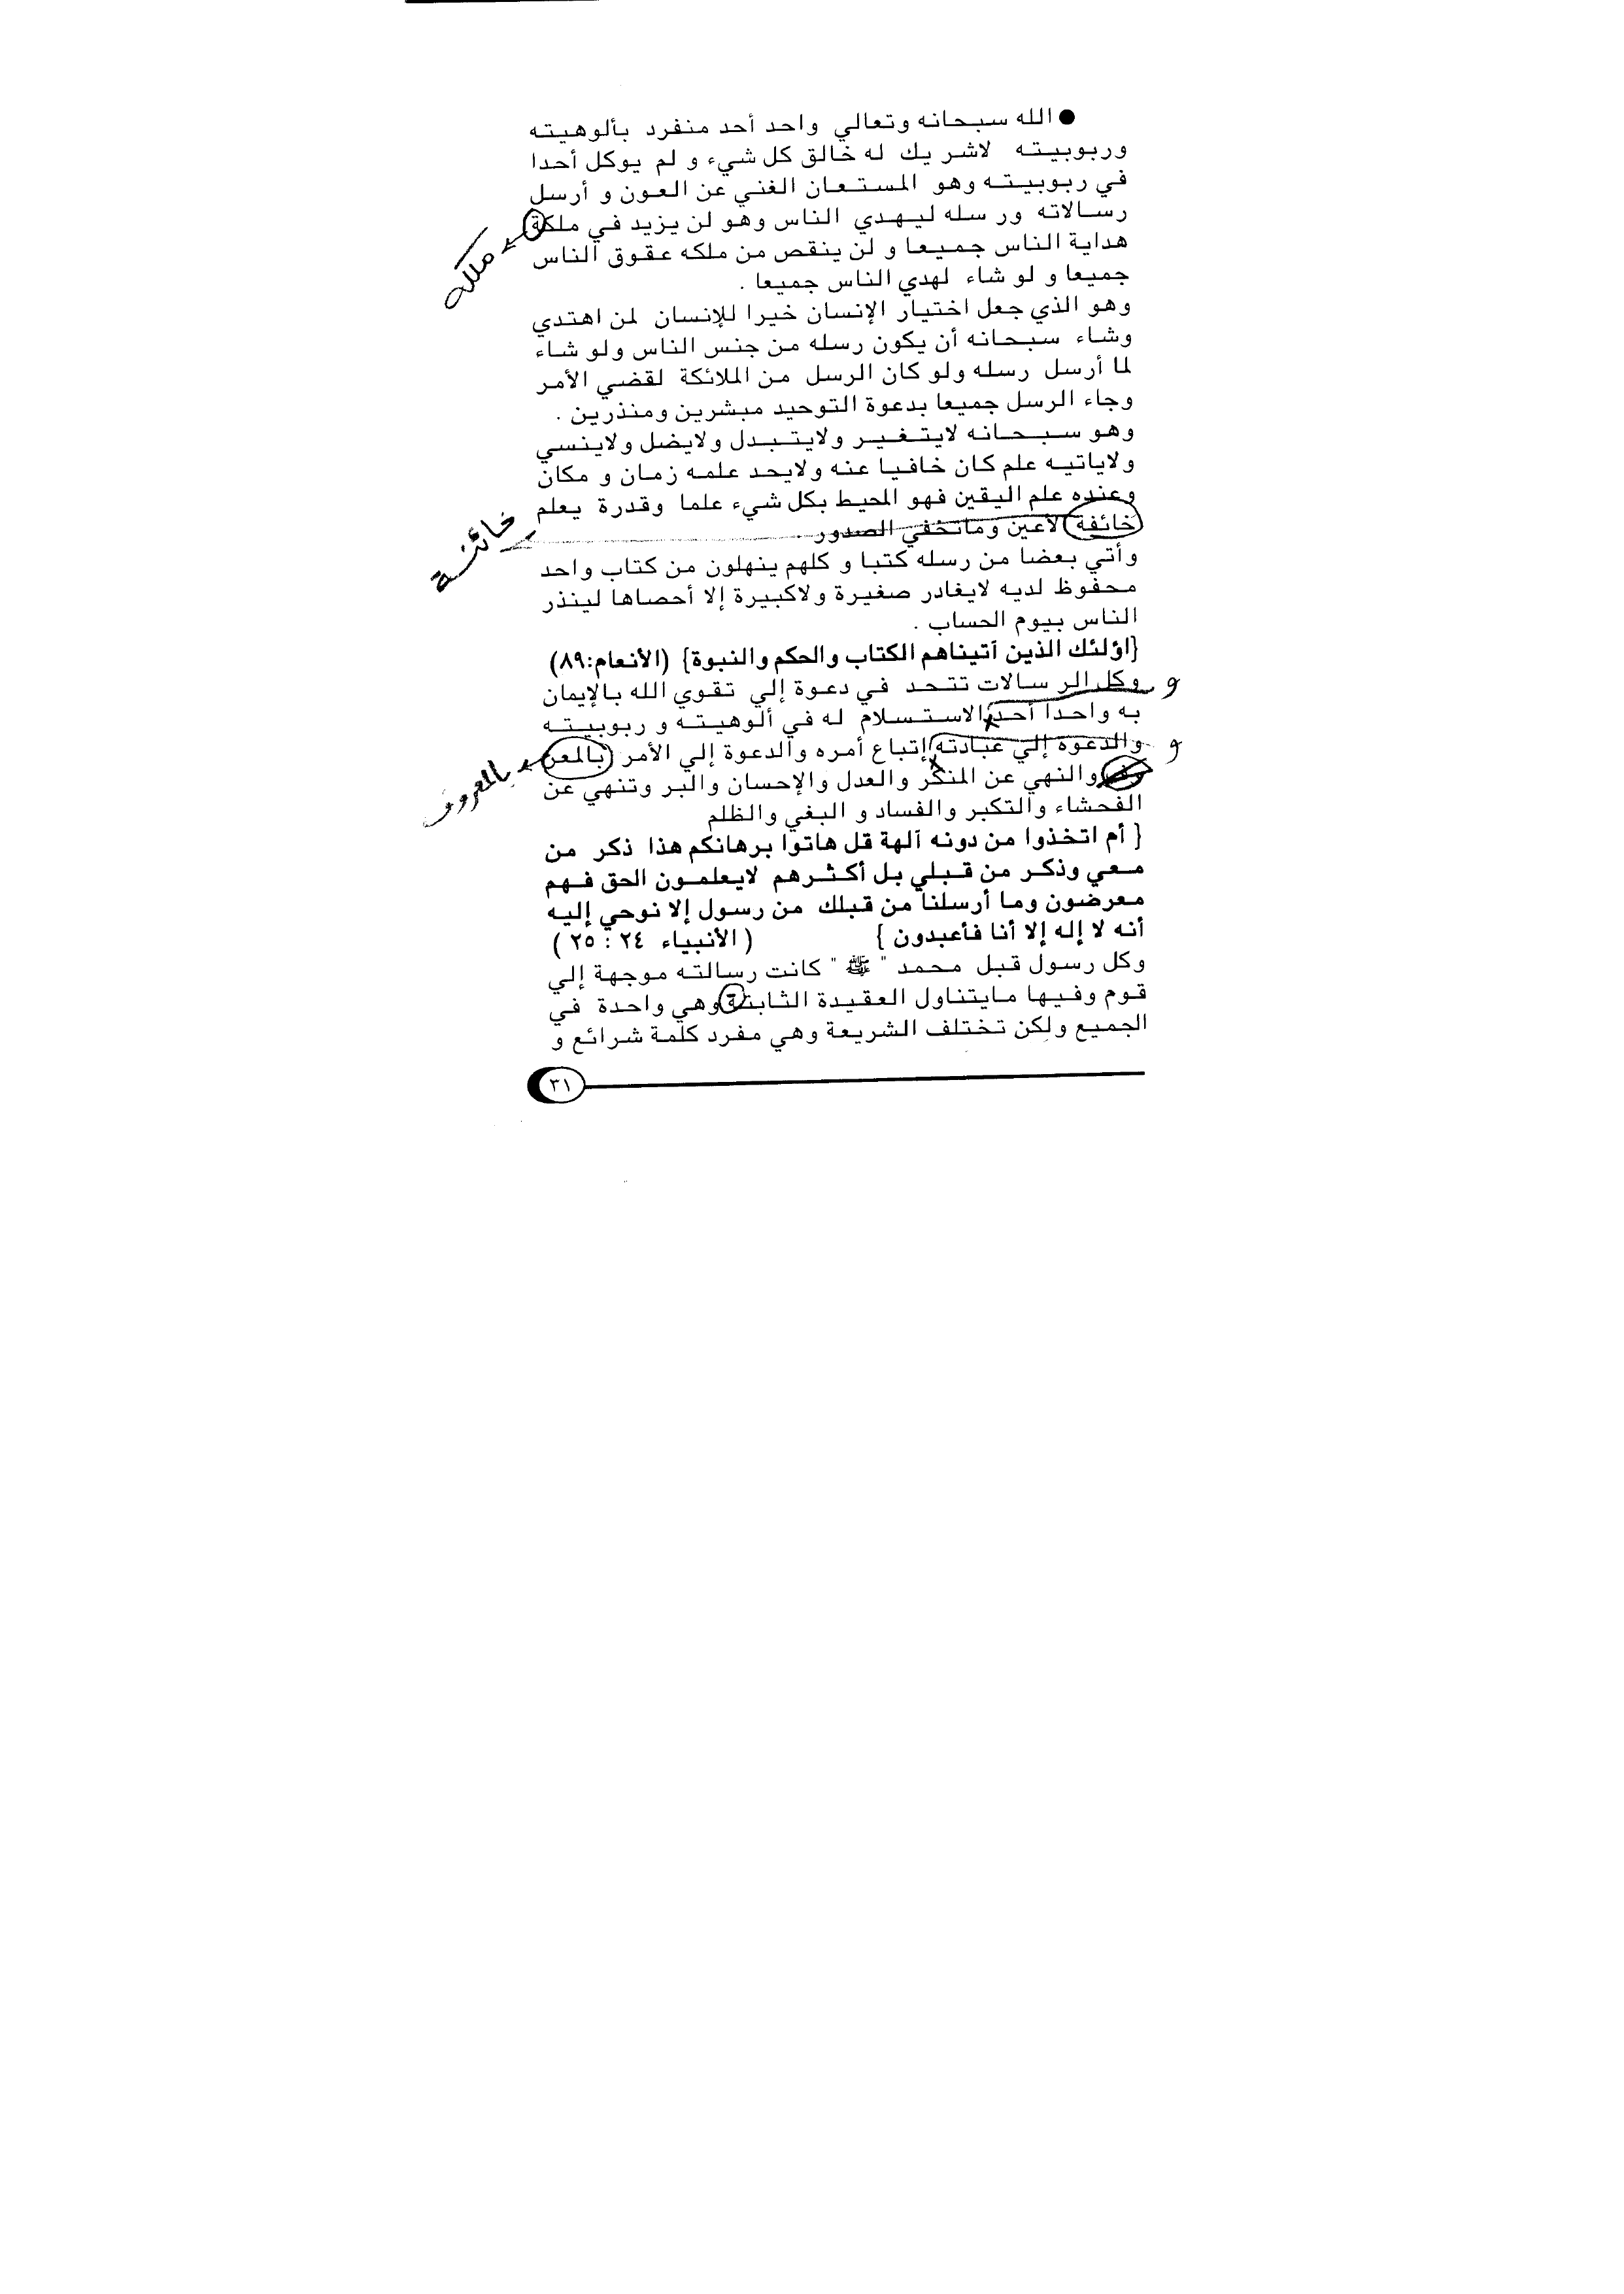 ● الله سبحانه وتعالي واحد أحد منفرد بألوهيته
وربوبيته لاشر يك له خالق كل شيء و لم يوكل أحدا
في ربوبيته وهو المستعان الغني عن العون و أرسل
رسالاته ور سله ليهدي الناس وهو لن يزيد في ملكة
ملكه
هداية الناس جميعا و لن ينقص من ملكه عقوق الناس
جميعا و لو شاء لهدي الناس جميعا .
وهو الذي جعل اختيار الإنسان خيرا للإنسان لمن اهتدي
وشاء سبحانه أن يكون رسله من جنس الناس ولو شاء
لما أرسل رسله ولو كان الرسل من الملائكة لقضي الأمر
وجاء الرسل جميعا بدعوة التوحيد مبشرين ومنذرين .
وهو سبحانه لايتغير ولايتبدل ولايضل ولاينسي
ولاياتيه علم كان خافيا عنه ولايحد علمه زمان و مكان
وعنده علم اليقين فهو المحيط بكل شيء علما وقدرة يعلم
خائفة لأعين وماتخفي الصدور .
خائنة
وأتي بعضا من رسله كتبا و كلهم ينهلون من كتاب واحد
محفوظ لديه لايغادر صغيرة ولاكبيرة إلا أحصاها لينذر
الناس بيوم الحساب .
{اؤلئك الذين آتيناهم الكتاب والحكم والنبوة} (الأنعام:٨٩)
وكل الر سالات تتحد في دعوة إلي تقوي الله بالإيمان
و
به واحدا أحدا الاستسلام له في ألوهيته و ربوبيته
والدعوة إلي عبادته إتباع أمره والدعوة إلي الأمر بالمعر
و
بالمعروف
وف والنهي عن المنكر والعدل والإحسان والبر وتنهي عن
الفحشاء والتكبر والفساد و البغي والظلم
{ أم اتخذوا من دونه آلهة قل هاتوا برهانكم هذا ذكر من
معي وذكر من قبلي بل أكثرهم لايعلمون الحق فهم
معرضون وما أرسلنا من قبلك من رسول إلا نوحي إليه
أنه لا إله إلا أنا فأعبدون } ( الأنبياء ٢٤ : ٢٥ )
وكل رسول قبل محمد " ﷺ " كانت رسالته موجهة إلي
قوم وفيها مايتناول العقيدة الثابتة وهي واحدة في
الجميع ولكن تختلف الشريعة وهي مفرد كلمة شرائع و
٣١